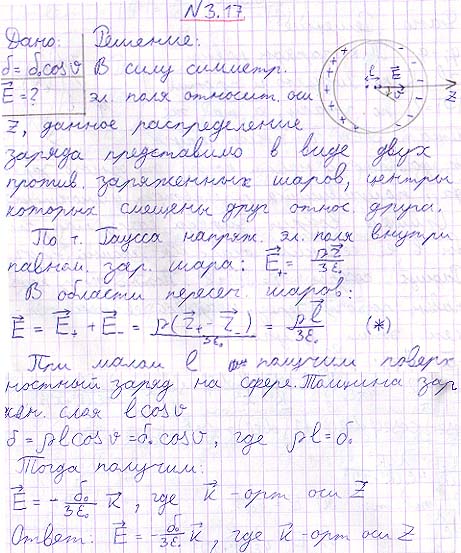 N 3.17
Дано: Решение:
б = б₀cosϑ В силу симметр.
E⃗ = ? эл. поля относит. оси
Z, данное распределение
заряда представимо в виде двух
против. заряженных шаров, центры
которых смещены друг относ. друга.
По т. Гаусса напряж. эл. поля внутри
равном. зар. шара: E⃗₊ = ρr⃗/3ε₀
В области пересеч. шаров:
E⃗ = E⃗₊ + E⃗₋ = ρ(r⃗₊ - r⃗₋)/3ε₀ = ρl⃗/3ε₀ (*)
При малом l получим поверх
ностный заряд на сфере. Толщина зар
жен. слоя l cosϑ
б = ρl cosϑ = б₀ cosϑ, где ρl = б₀
Тогда получим:
E⃗ = - б₀/3ε₀ k⃗, где k⃗ - орт оси Z
Ответ: E⃗ = - б₀/3ε₀ k⃗, где k⃗ - орт оси Z
+ + + + + + +
l E⃗ ϑ
- - - - - -
Z